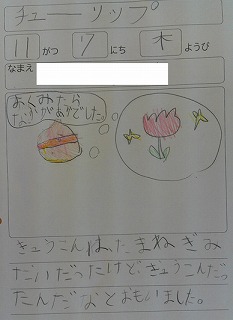 チューリップ
11がつ7にち木ようび
なまえ
よくみたら
なかがあかでした。
きゅうこんは、たまねぎみ
たいだったけど、きゅうこんだ。
たんだなとおもいました。